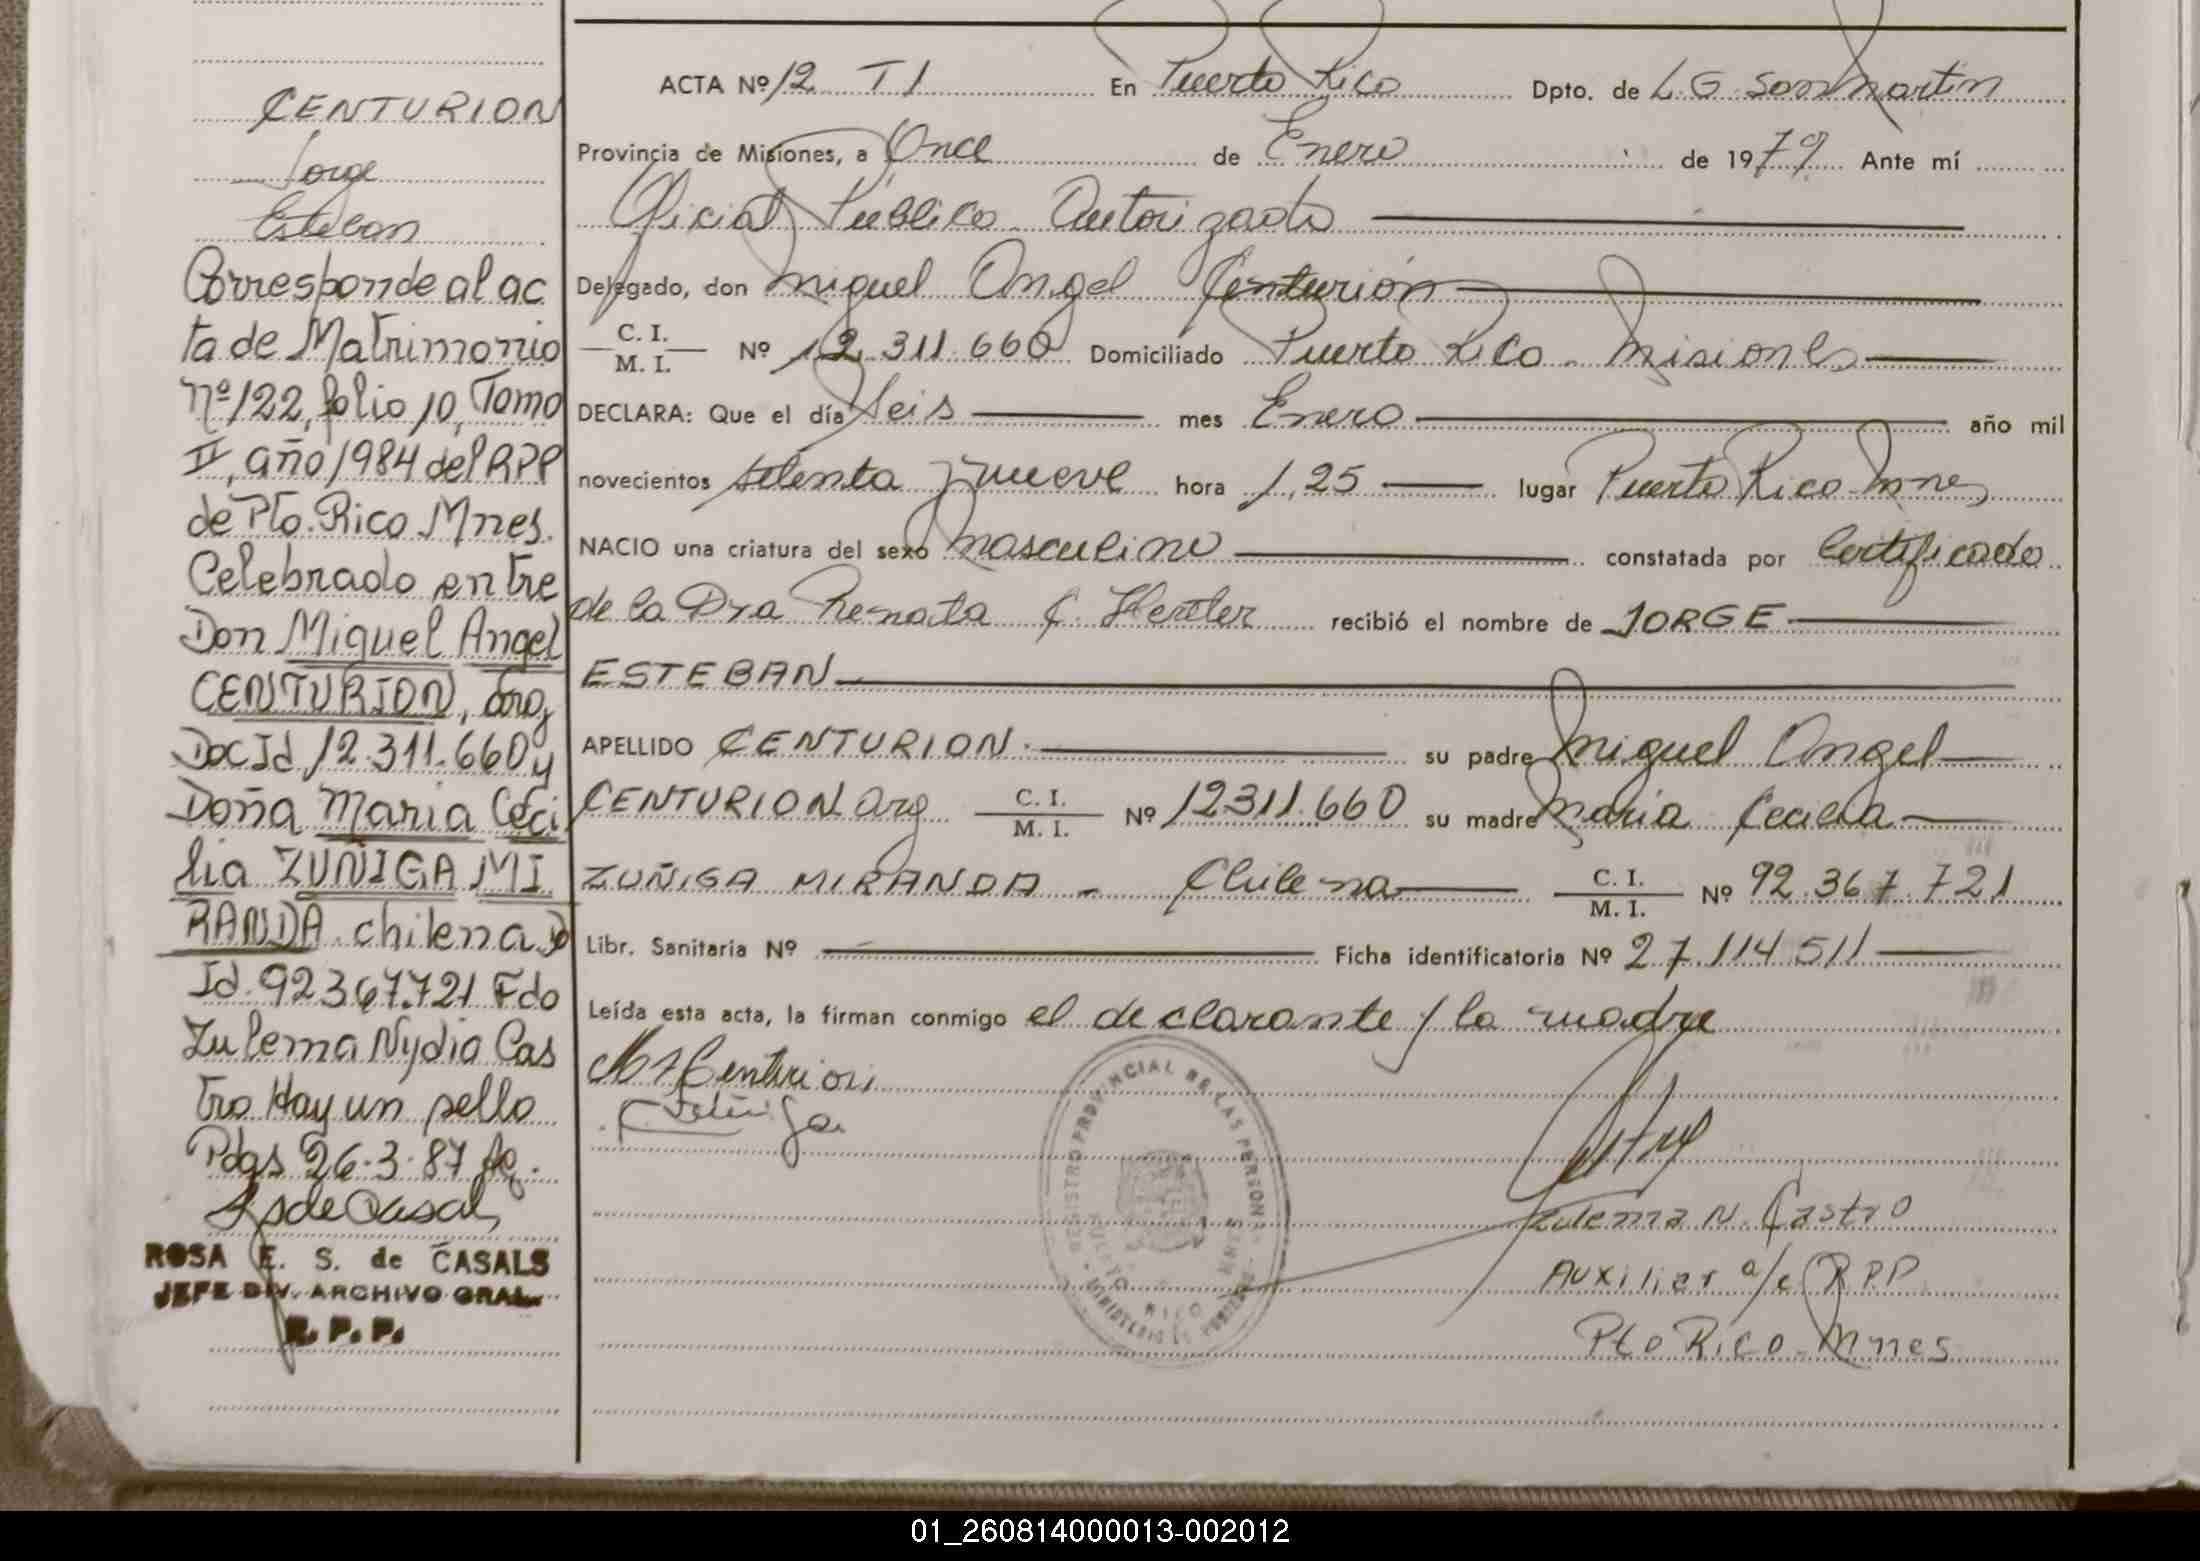 CENTURION
Jorge
Esteban
Corresponde al ac
ta de Matrimonio
Nº 122, folio 10, Tomo
II, año 1984 del RPP
de Pto. Rico Mnes.
Celebrado entre
Don Miguel Angel
CENTURION, arg,
Doc Id 12.311.660 y
Doña Maria Ceci
lia ZUÑIGA MI
RANDA chilena D
Id. 92367.721 Fdo
Zulema Nydia Cas
tro Hay un sello
Pdas 26.3.87
ROSA E. S. de CASALS
JEFE DIV. ARCHIVO GRAL.
R. P. P.
ACTA Nº 12 T I En Puerto Rico Dpto. de L. G. San Martin
Provincia de Misiones, a Once de Enero de 1979. Ante mí
Oficial Público Autorizado
Delegado, don Miguel Angel Centurión
C. I.
M. I. Nº 12.311.660 Domiciliado Puerto Rico - Misiones
DECLARA: Que el día Seis mes Enero año mil
novecientos setenta y nueve hora 1,25 lugar Puerto Rico Mnes
NACIO una criatura del sexo masculino constatada por Certificado
de la Dra Renata C. Hertler recibió el nombre de JORGE
ESTEBAN
APELLIDO CENTURION. su padre Miguel Angel
CENTURION Arg C. I.
M. I. Nº 12311.660 su madre Maria Cecilia
ZUÑIGA MIRANDA - Chilena C. I.
M. I. Nº 92.367.721
Libr. Sanitaria Nº Ficha identificatoria Nº 27.114.511
Leída esta acta, la firman conmigo el declarante y la madre
M A Centurion
C. Zuñiga
REGISTRO PROVINCIAL DE LAS PERSONAS
PUERTO RICO
Zulema N. Castro
Auxiliar a/c R.P.P.
Pto Rico - Mnes
01_260814000013-002012